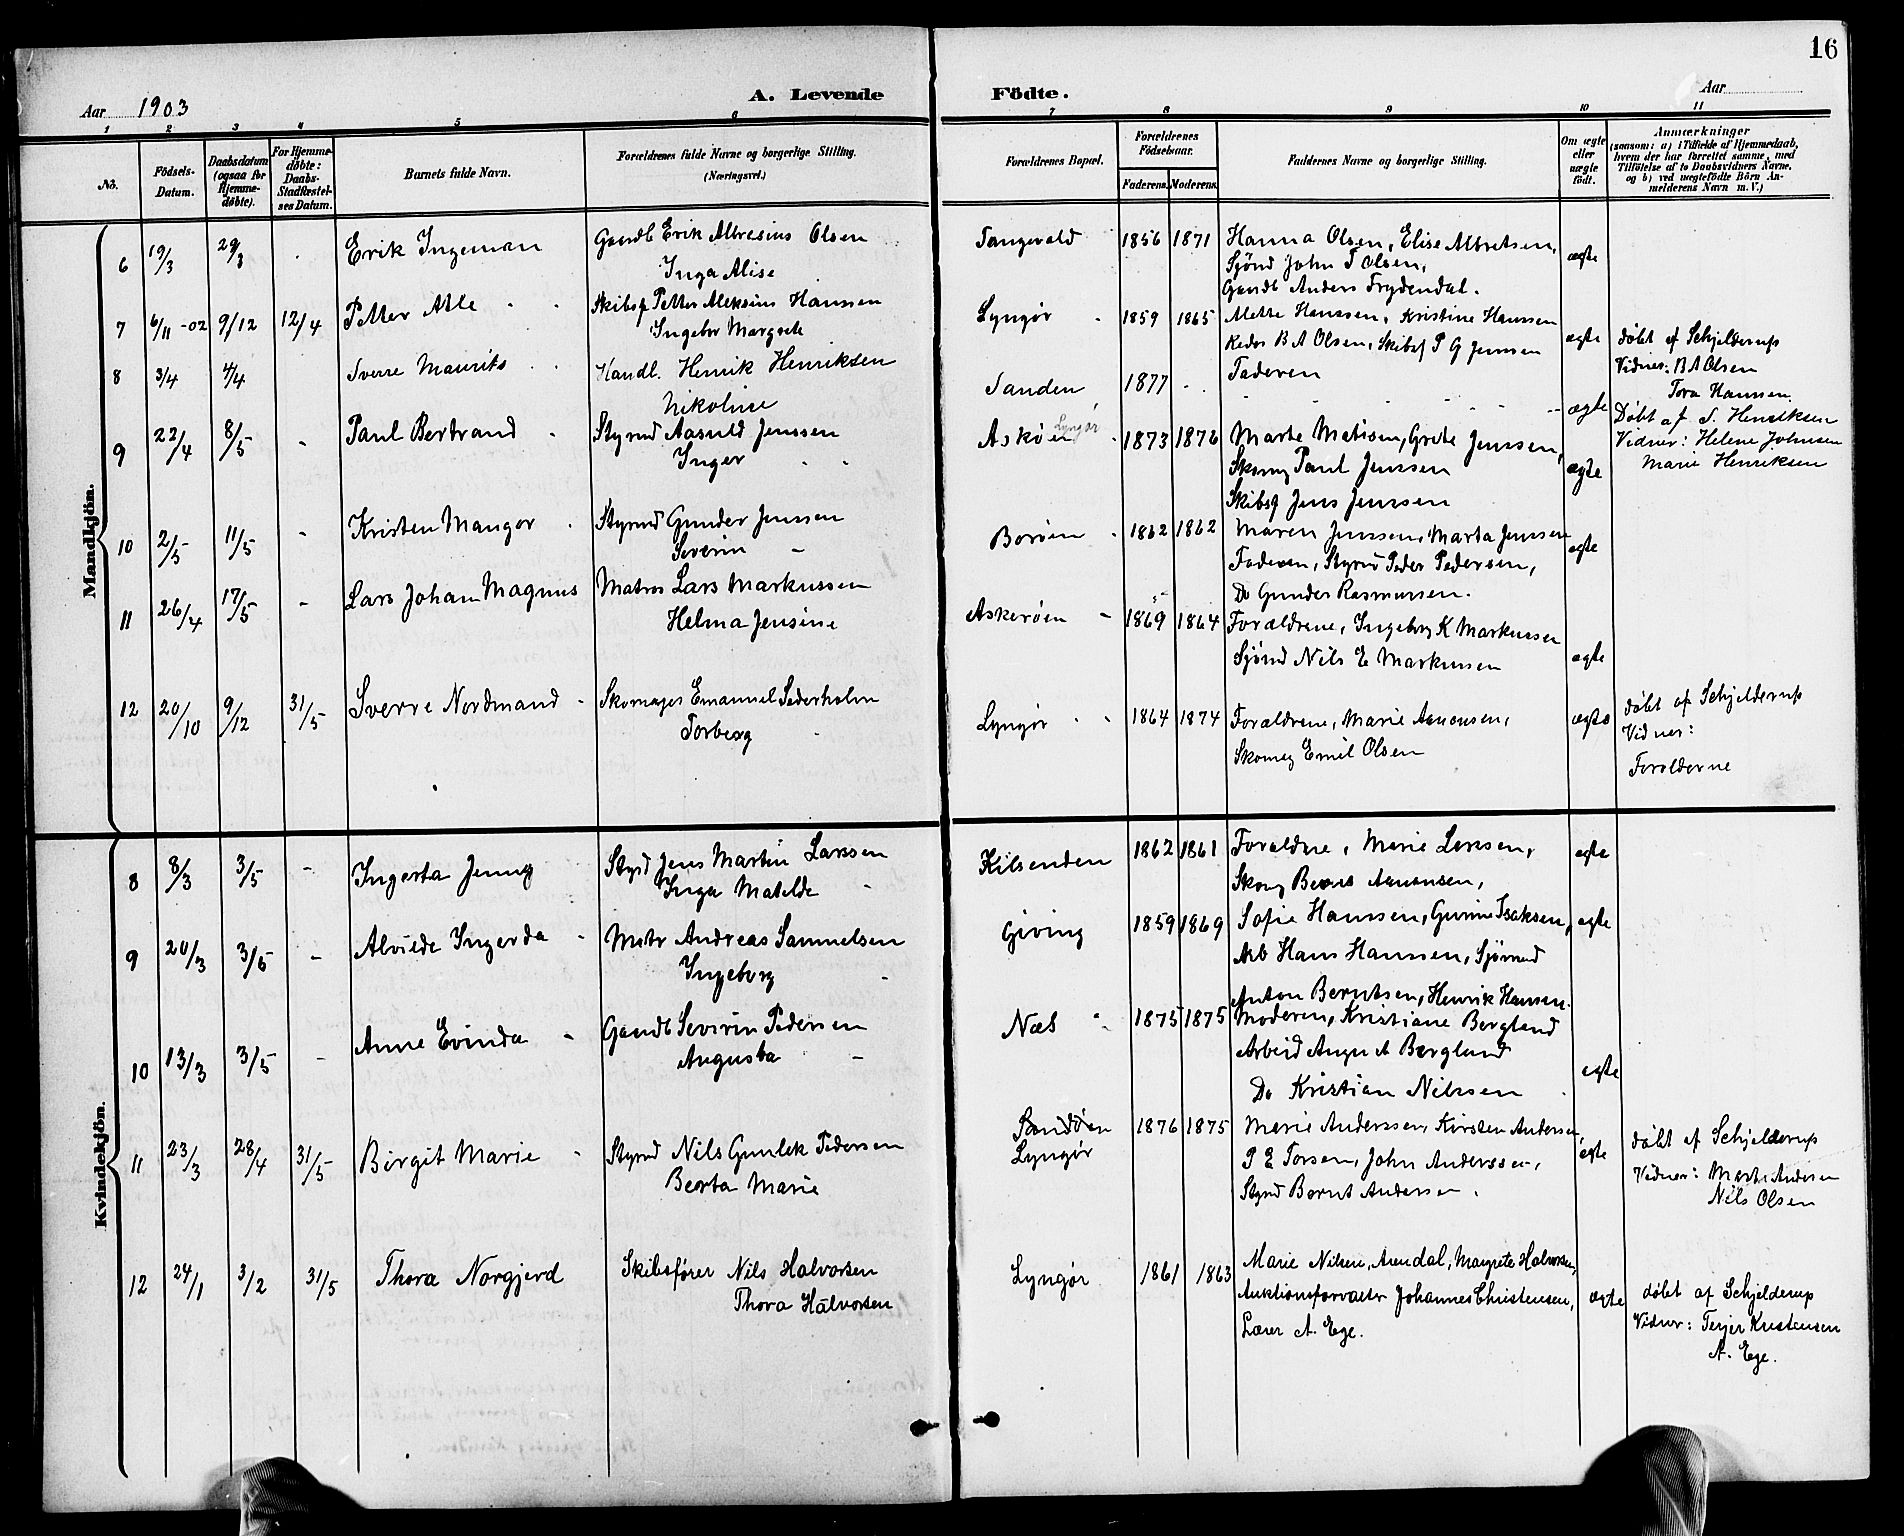 16
Aar 1903
A. Levende Födte.
Aar
1 2 3 4 5 6 7 8 9 10 11
No.
Födsels-Datum.
Daabsdatum (ogsaa for Hjemme-döbte).
For Hjemme-döbte: Daabs-Stadfæstel-ses Datum.
Barnets fulde Navn.
Forældrenes fulde Navne og borgerlige Stilling.
(Næringsvei.)
Forældrenes Bopæl.
Forældrenes Födselsaar.
Faderens. Moderens.
Faddernes Navne og borgerlige Stilling.
Om ægte eller uægte födt.
Anmærkninger
(saasom: a) i Tilfælde af Hjemmedaab, hvem der har forrettet samme, med Tilföielse af to Daabsvidners Navne, og b) ved uægtefödte Börn An-melderens Navn m. V.)
Mandkjön.
6 19/3 29/3 Erik Ingeman Gaardb Erik Albresius Olsen Tangevald 1856 1871 Hanna Olsen, Elise Albretsen, ægte
Inga Alise Sjömd John T Olsen,
Gaardb Anders Frydendal.
7 6/11-02 9/12 12/4 Petter Atle Skibsf Petter Aleksius Hanssen Lyngør 1859 1865 Mette Hanssen, Kristine Hanssen ægte døbt af Schjelderup
Ingebor Margrete Reder B A Olsen, Skibsf P G Jenssen Vidner: B A Olsen
Tora Hanssen.
8 3/4 4/4 Sverre Maurits Handl. Henrik Henriksen Sanden 1877 Faderen ægte Døbt af S. Henriksen
Nikoline Vidner: Helene Johnsen
Marie Henriksen
9 22/4 8/5 - Paul Bertrand Styrmd Aasuld Jenssen Askøen Lyngør 1873 1876 Marte Matisen, Grete Jenssen, ægte
Inger Skomg Paul Jenssen
Skibsf Jens Jenssen
10 2/5 11/5 - Kristen Mangor Styrmd Gunder Jenssen Borøen 1862 1862 Maren Jenssen, Marta Jenssen ægte
Severin Faderen, Styrm Peder Pedersen,
Do Gunder Rasmussen.
11 26/4 17/5 - Lars Johan Magnus Matros Lars Markussen Askerøen 1869 1864 Forældrene, Ingeborg K Markussen ægte
Helma Jensine Sjömd Nils E Markussen
12 20/10 9/12 31/5 Sverre Nordmand Skomager Emanuel Sederholm Lyngør 1864 1874 Forældrene, Marie Aanonsen, ægte døbt af Schjelderup
Torberg Skomag Emil Olsen Vidner:
Forælderne
Kvindekjön.
8 8/3 3/5 - Ingerta Jenny Styrd Jens Martin Larssen Kilsenden 1862 1861 Forældrne, Marie Larssen, ægte
Inga Matelde Skomg Aanonsen,
9 20/3 3/5 - Alvilde Ingerda Matr Andreas Samuelsen Giving 1859 1869 Sofie Hanssen, Gurine Isaksen, ægte
Ingeborg Arb Hans Hanssen, Sjömnd
Anton Berntsen, Henrik Hansen.
10 13/3 3/5 - Anne Evinda Gaardb Severin Pedersen Næs 1875 1875 Moderen, Kristiane Bergland ægte
Augusta Arbeid August A Berglund
Do Kristian Nilssen
11 23/3 28/4 31/5 Birgit Marie Styrmd Nils Gunlek Pedersen Sandøen Lyngør 1876 1875 Marie Anderssen, Kirsten Andersen, ægte døbt af Schjelderup
Berta Marie P E Torsen, John Anderssen, Vidner: Marte Andersen
Styrd Bernt Andersen. Nils Olsen
12 24/1 3/2 31/5 Thora Norgjerd Skibsfører Nils Halvorsen Lyngør 1861 1863 Marie Nilsen, Arendal, Margrete Halvorsen, ægte døbt af Schjelderup
Thora Halvorsen Auktionsforvalter Johannes Christensen, Vidner: Terjer Kristensen
Lærer A. Ege. A. Ege.